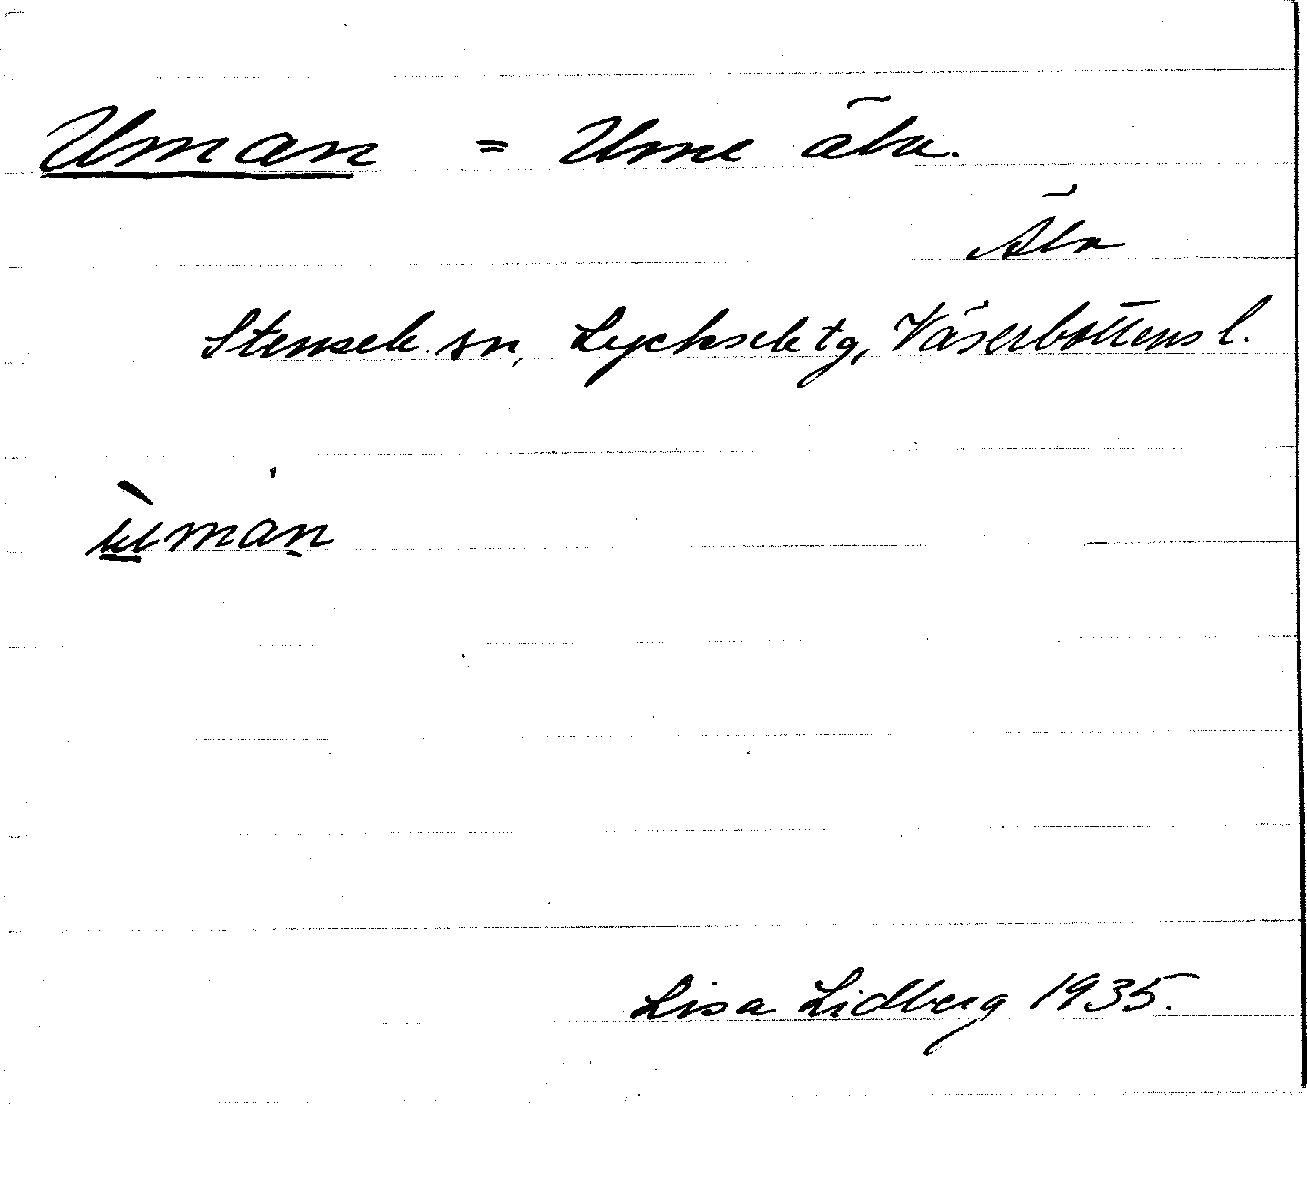 Uman = Ume älv.
Älv
Stensele sn, Lycksele tg, Väserbottens l.
ùmån
Lisa Lidberg 1935.